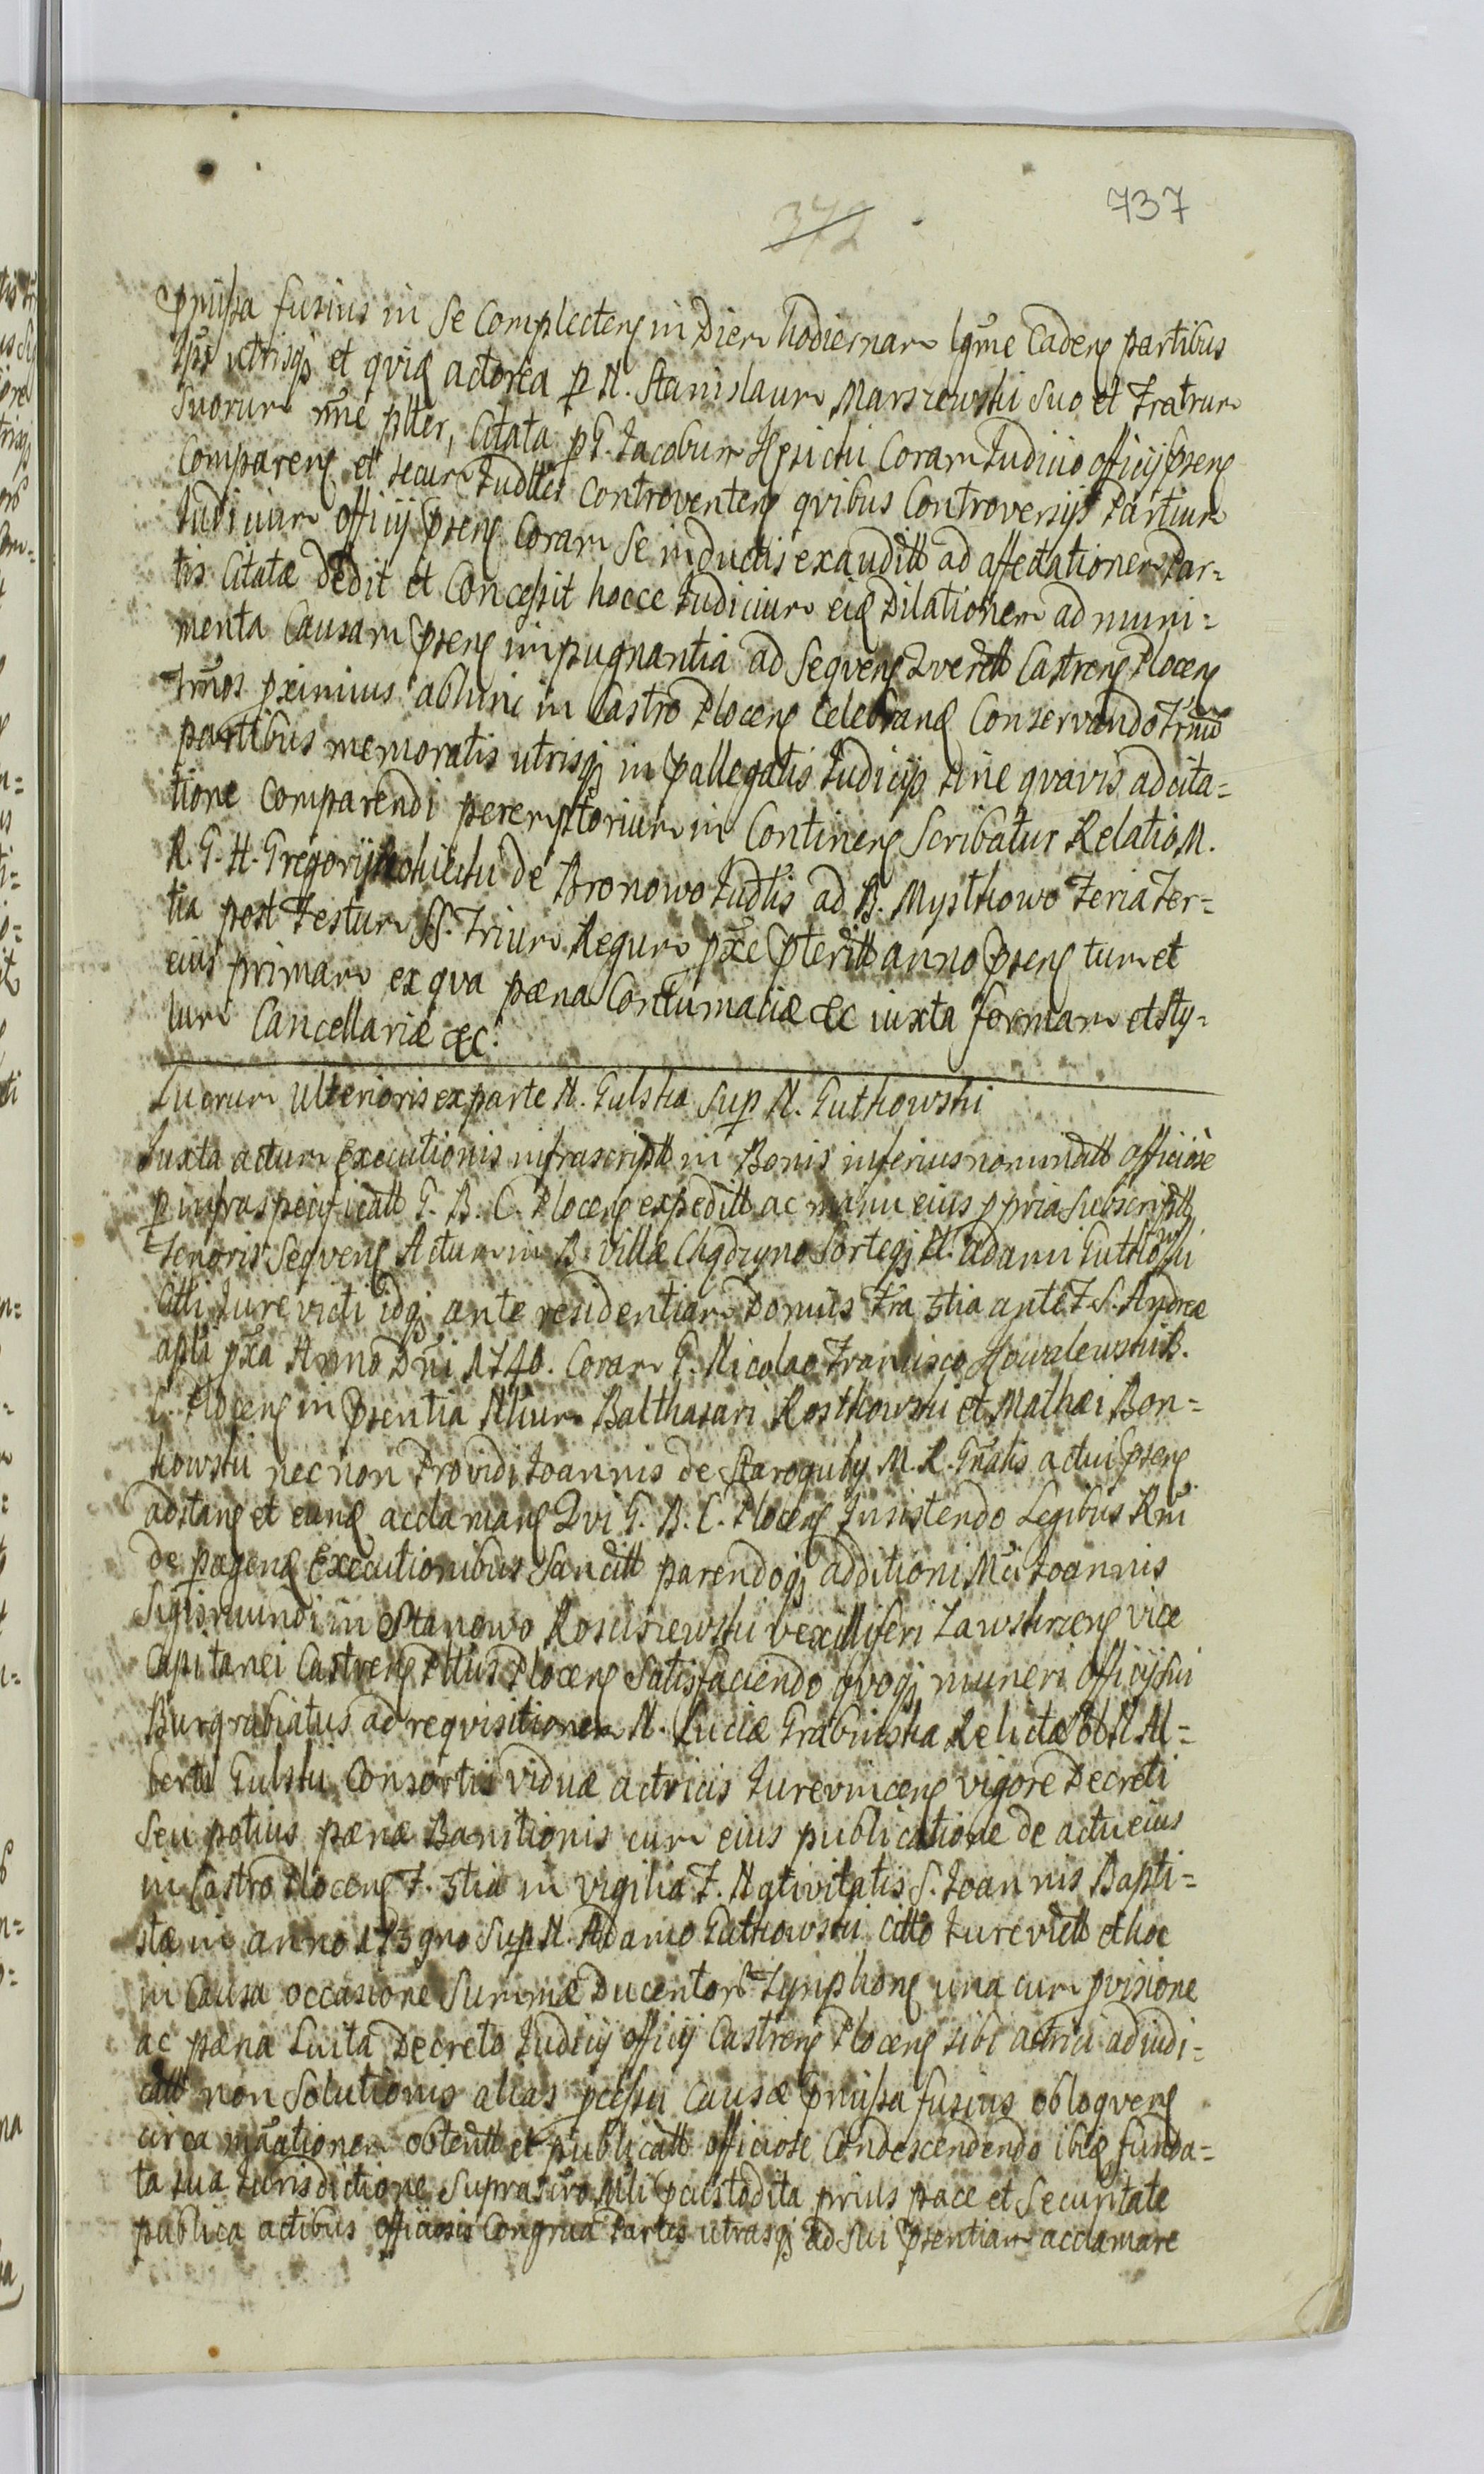 737
372
pmissa fusius in se Complecteng in Diem hodiernam lgme Cadeng partibus
Ipis utrisqz et qvidz actorea p N. Stanislaum Marszewski suo et Fratrum
Suorum nne pltter, Citata p G. Jacobum Coram Judicio officij pseng
Compareng et secum Judtter Controverteng qvibus Controversijs Partium
Judicium officij pseng Coram Se inductis exauditt ad affectationem Par=
tis Citatæ dedit et Concessit hocce Judicium eidz Dilationem ad muni=
menta Causam pseng impugnantia ad Seqveng Qverett Castreng Ploceng
Trmos pximius abhinc in Castro Ploceng Celebrandz Conservando Trmo
partibus memoratis utrisqz in pallegatis Judicijs sine qvavis adcita=
tione Comparendi peremptorium in Contineng Scribatur Relatio M.
R. G. H. Gregorij de Bronowo Judtis ad B. Mysthowo Feria Ter=
tia post Festum SS. Trium Regum pxe pteritt anno pseng tum et
eius primam ex qva pæna Contumaciæ &c iuxta formam et sty=
lum Cancellariæ &c.
Lucrum Ulterioris ex parte N. Gulska Sup N. Guthowski
Iuxta actum Executionis infrascriptt in Bonis inferius nominatt officiose
p infraspecificatt G. B. C. Ploceng expeditt ac manu eius ppria Subscriptt
Tenoris Seqveng Actum in B. Villæ Chqdzyno Sorteqz N. Adami Guthowski
Citti Jurevicti idqz ante residentiam Domus Fra 3tia ante F. S. Andreæ
apli pxa Anno Dni 1740. Coram G. Nicolao Francisco Kowalewski B.
C. Ploceng in psentia Nlium Balthasari Rosthowski et Mathæi Bon=
kowski necnon Providi Joannis de Staroguby M. R. Gnalis actui pseng
adstang et eundz acclamang Qvi G. B. C. Ploceng Insistendo Legibus Rni
de pagendz Executionibus Sancitt parendoqz additioni Mci Joannis
Sigismundi in Stanowo Rosciszewski vexilliferi Zawskrzeng vice
Capitanei Castreng Pttius Ploceng Satisfaciendo qvoqz muneri officij sui
Burgrabiatus ad reqvisitionem N. Luciæ Grabinska Relictæ N. Al=
berti Gulski Consortis viduæ actricis Jurevinceng vigore Decreti
Seu potius pænæ Banitionis cum eius publicatione de actu eius
in Castro Ploceng F. 3tia in vigilia F. Nativitatis S. Joannis Bapti=
stæ in anno 173gno Sup N. Adamo Guthowski citto Jurevictt et hoc
in Causa occasione Summæ Ducentor Tynphong una cum pvisione
ac pæna Luita Decreto Judicij officij Castreng Ploceng sibi actrici adiudi=
catt non Solutionis alias pcessu Causæ pmissa fusius obloqveng
circa obtentt et publicatt officiose Condescendendo ibidz funda=
ta sua Jurisdictione pcustodita prius pace et Securitate
publica actibus officiosis Congrua Partes utrasqz ad sui psentiam acclamare